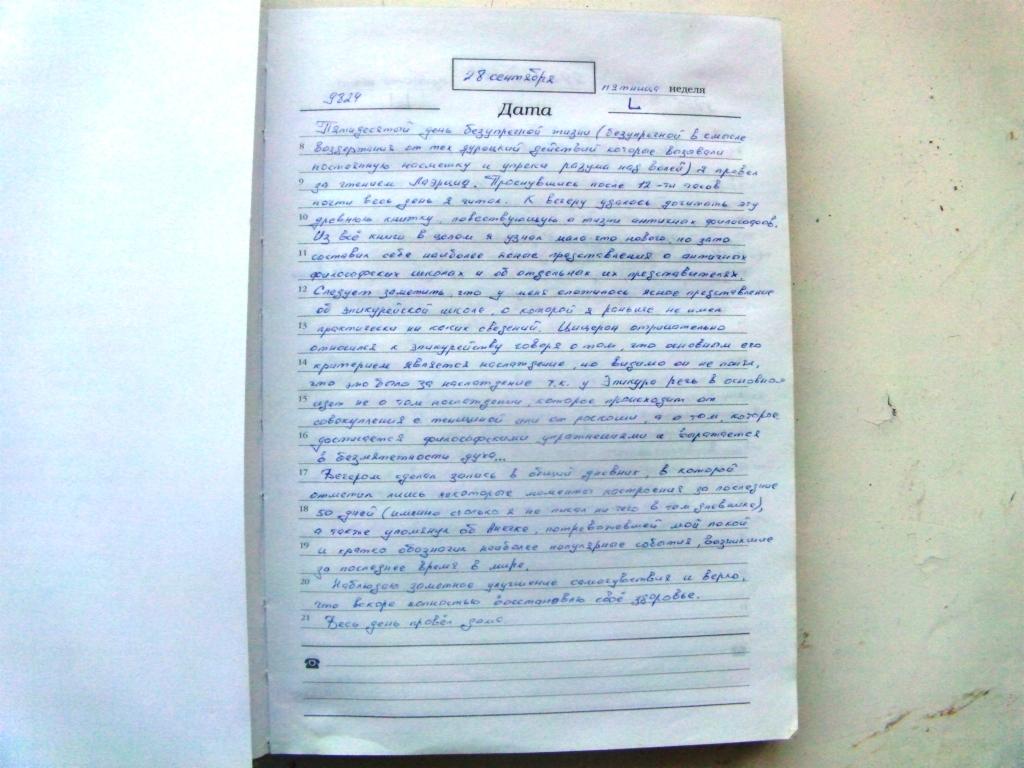 28 сентября
пятница неделя
9324
Дата
L
Пятидесятый день безупречной жизни (безупречной в смысле
8 воздержания от тех дурацкий действий которые вызвали
постоянную насмешку и упреки разума над волей) я провел
9 за чтением Лаэрция. Проснувшись после 12-ти часов
почти весь день я читал. К вечеру удалось дочитать эту
10 древнюю книжку, повествующую о жизни античных философов.
Из всё книги в целом я узнал мало что нового, но зато
11 составил себе наиболее ясные представления о античных
философских школах и об отдельных их представителях.
12 Следует заметить, что у меня сложилось ясное представление
об эпикурейской школе, о которой я раньше не имел
13 практически ни каких сведений. Цицерон отрицательно
относился к эпикурейству говоря о том, что основным его
14 критерием является наслаждение, но видимо он не понял,
что это было за наслаждение т.к. у Эпикура речь в основном
15 идет не о том наслаждении, которое происходит от
совокупления с женщиной или от роскоши, а о том, которое
16 достигается философскими упражнениями и выражается
в безмятежности духа...
17 Вечером сделал запись в общий дневник, в которой
отметил лишь некоторые моменты настроения за последние
18 50 дней (именно столько я не писал ни чего в том дневнике),
а также упомянул об потревожившей мой покой
19 и кратко обозначил наиболее популярные события, возникшие
за последнее время в мире.
20 Наблюдаю заметное улучшение самочувствия и верю,
что вскоре полностью восстановлю своё здоровье.
21 Весь день провёл дома